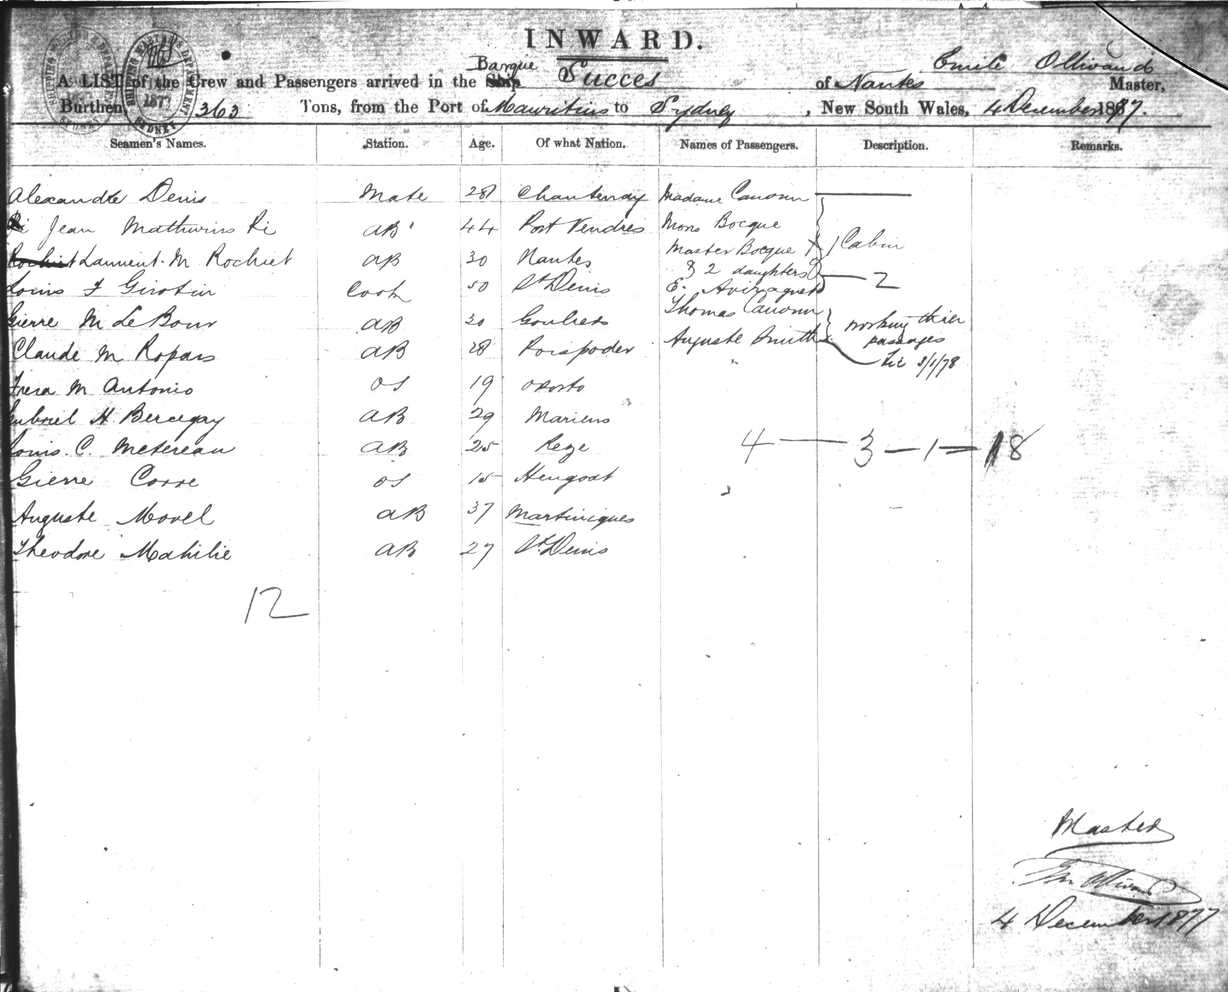 INWARD.
A LIST of the Crew and Passengers arrived in the Ship Barque Succes of Nantes Emile Ollivaud Master,
Burthen 363 Tons, from the Port of Mauritius to Sydney, New South Wales, 4 December 1877.
Seamen's Names. Station. Age. Of what Nation. Names of Passengers. Description. Remarks.
Alexandre Denis Mate 28 Chantenay Madame Canonn
Jean Mathurins Ri AB 44 Port Vendres Mons Bocque
Laurent M Rochiet AB 30 Nantes Master Bocque Cabin
& 2 daughters 2
Louis F Girotin Cook 50 St Denis E.
Thomas Canonn
Gierre M Le Bour AB 30 Gouliets working thier
Claude M Ropars AB 28 Porspoder Auguste Smith passages
3/1/78
M Antonio OS 19 Oporto
Gabriel H Bercegay AB 29 Mariens
Louis C. Metereau AB 25 Reze 4 — 3 — 1 = 18
Gierre Corre OS 15 Hengoat
Auguste Morel AB 37 Martiniques
Theodore Mahilie AB 27 St Denis
12
Master
Em Ollivaud
4 December 1877